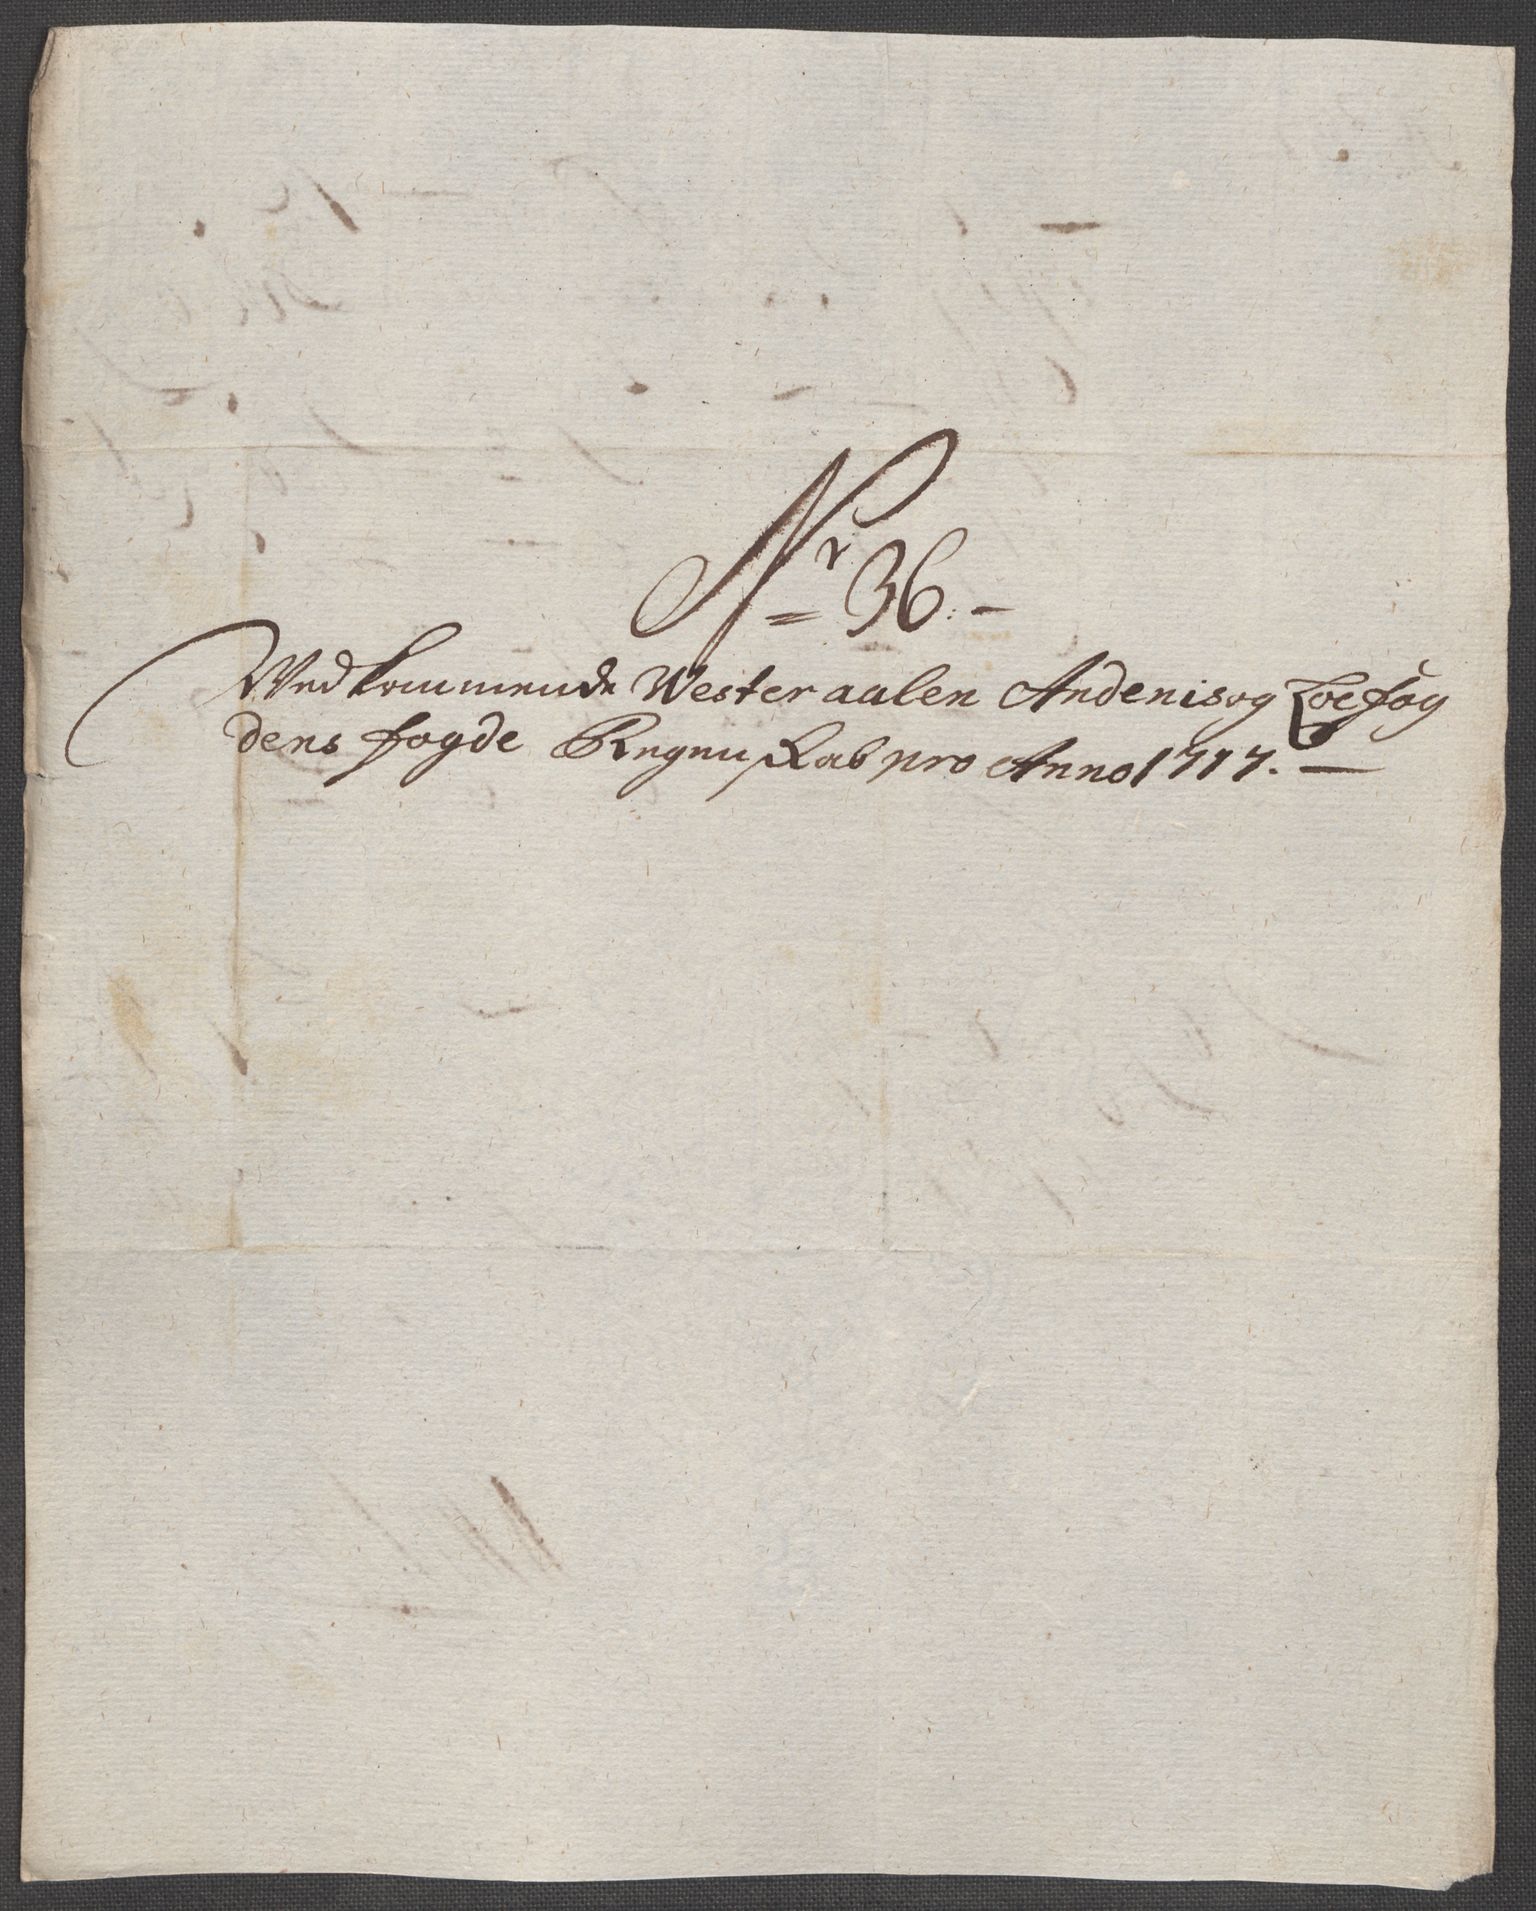 Nr 36. -
Vedkommende Westeraalen Andenis og Loefog
dens fogde Regnskab pro Anno 1717. -